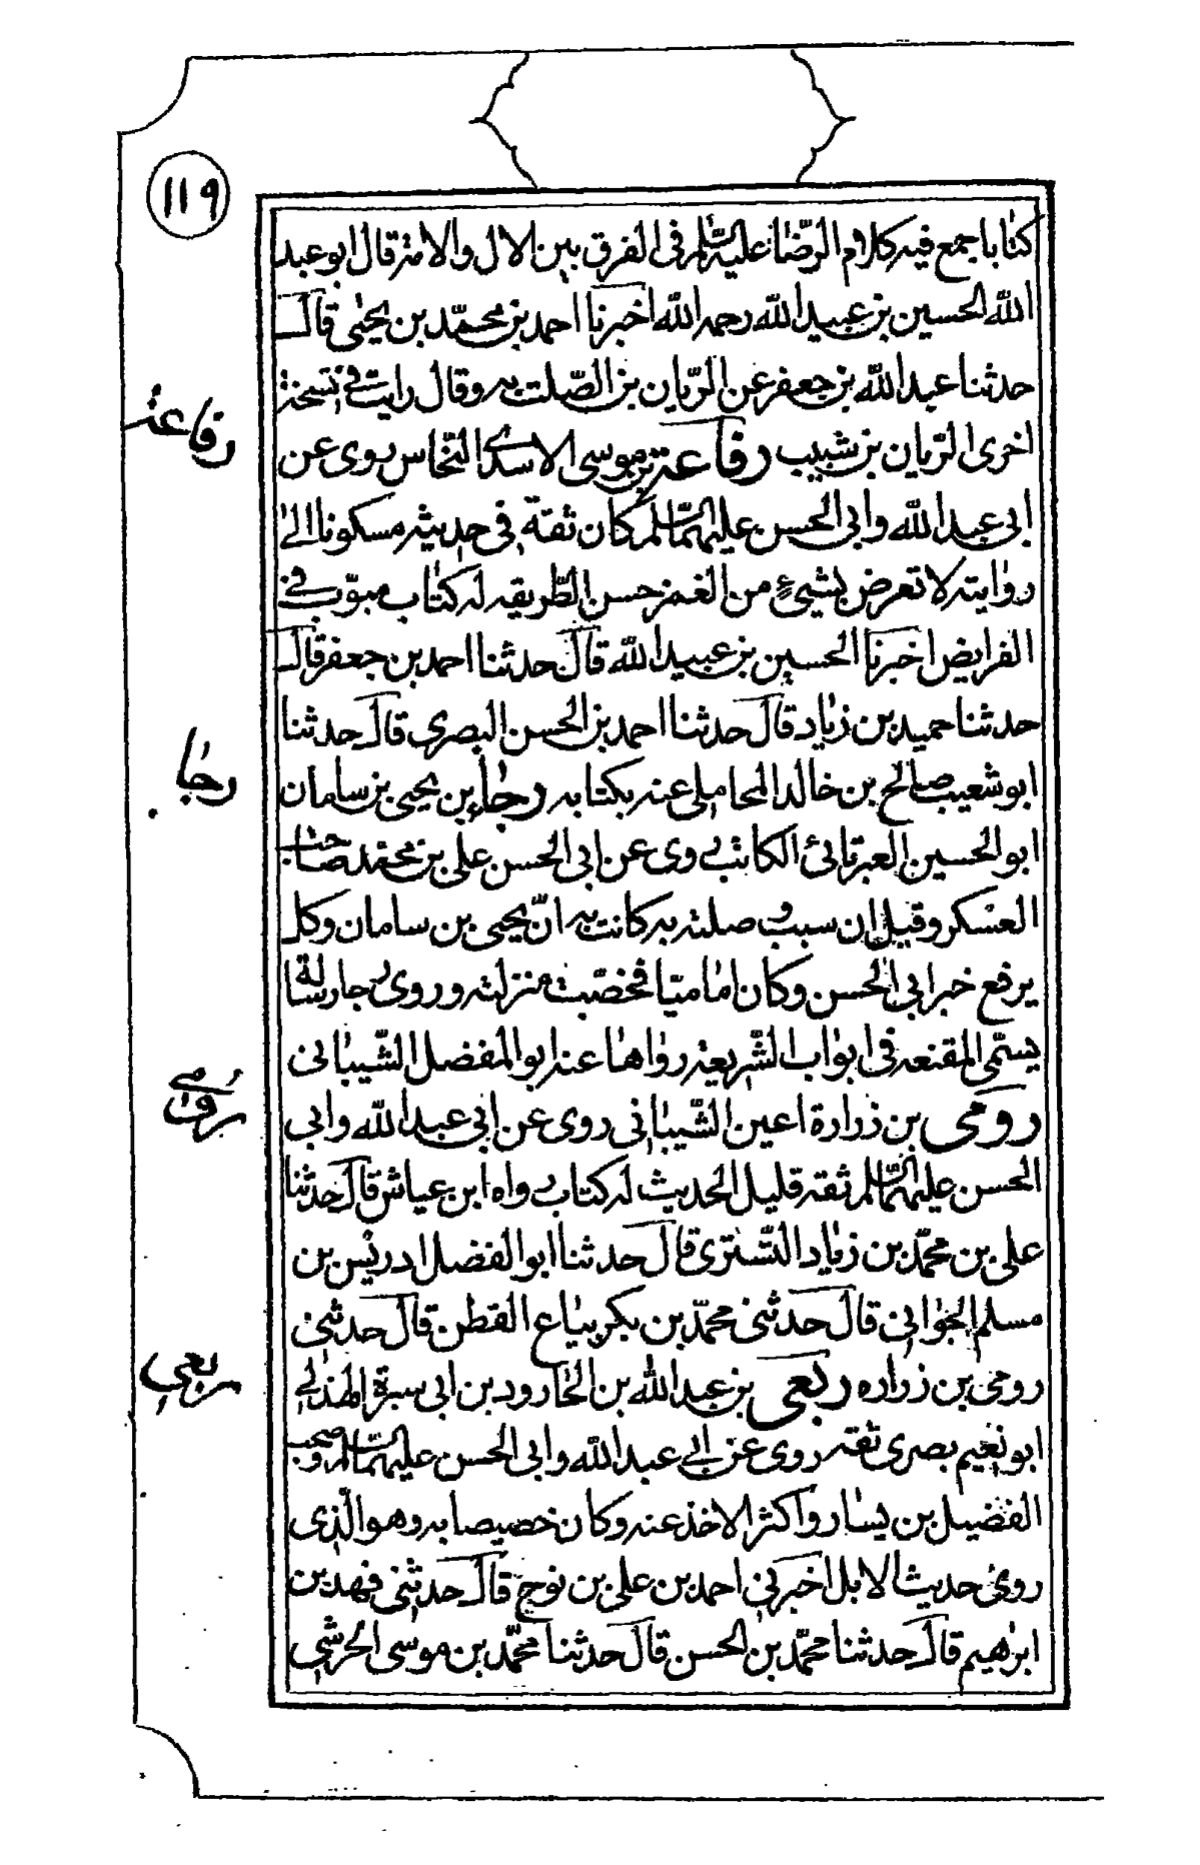 ١١٩
كتابا جمع فيه كلام الرضا عليه السلم في الفرق بين الال والامة قال ابو عبد
الله الحسين بن عبيد الله رحمه الله اخبرنا احمد بن محمد بن يحيى قال
حدثنا عبد الله بن جعفر عن الريان بن الصلت به وقال رايت في نسخة
اخرى الريان بن شبيب رفاعة بن موسى الاسدى النخاس روى عن
رفاعة
ابي عبد الله وابي الحسن عليهما السلم كان ثقة في حديثه مسكونا الى
روايته لا تعرض بشيء من الغمز حسن الطريقه له كتاب مبوب في
الفرايض اخبرنا الحسين بن عبيد الله قال حدثنا احمد بن جعفر قال
حدثنا حميد بن زياد قال حدثنا احمد بن الحسن البصرى قال حدثنا
ابو شعيب صالح بن خالد المحاملى عنه بكتابه رجاء بن يحيى بن سامان
رجا
ابو الحسين العبرتائى الكاتب روى عن ابي الحسن على بن محمد صاحب
العسكر وقيل ان سبب وصلته به كانت به ان يحيى بن سامان وكل
يرفع خبر ابى الحسن وكان اماميا فخصت منزلته وروى رجا رسالة
يسمى المقنعه في ابواب الشريعة رواها عنه ابو المفضل الشيبانى
رومى بن زرارة اعين الشيبانى روى عن ابي عبد الله وابى
رومى
الحسن عليهما السلم ثقة قليل الحديث له كتاب رواه ابن عياش قال حدثنا
على بن محمد بن زياد التسترى قال حدثنا ابو الفضل ادريس بن
مسلم الجوانى قال حدثنى محمد بن بكر بياع القطن قال حدثنى
رومى بن زراره ربعى بن عبد الله بن الجارود بن ابى سبرة الهذلى
ربعى
ابو نعيم بصرى ثقة روى عن ابى عبد الله وابى الحسن عليهما السلم وصحب
الفضيل بن يسار واكثر الاخذ عنه وكان خصيصا به وهو الذى
روى حديث الابل اخبرنى احمد بن على بن نوح قال حدثنى فهد بن
ابراهيم قال حدثنا محمد بن الحسن قال حدثنا محمد بن موسى الحرشى